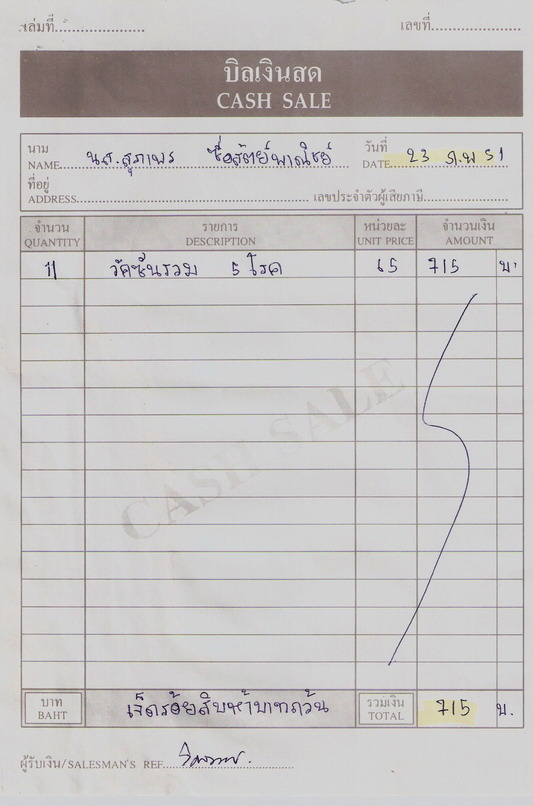 เล่มที่.................... เลขที่....................
บิลเงินสด
CASH SALE
นาม
NAME นส. สุภาพร ซื่อสัตย์พาณิชย์
วันที่
DATE 23 ก.พ 51
ที่อยู่
ADDRESS.................... เลขประจำตัวผู้เสียภาษี....................
จำนวน รายการ หน่วยละ จำนวนเงิน
QUANTITY DESCRIPTION UNIT PRICE AMOUNT
11 วัคซีนรวม 5 โรค 65 715 บ.
CASH SALE
บาท เจ็ดร้อยสิบห้าบาทถ้วน รวมเงิน 715 บ.
BAHT TOTAL
ผู้รับเงิน/SALESMAN'S REF.